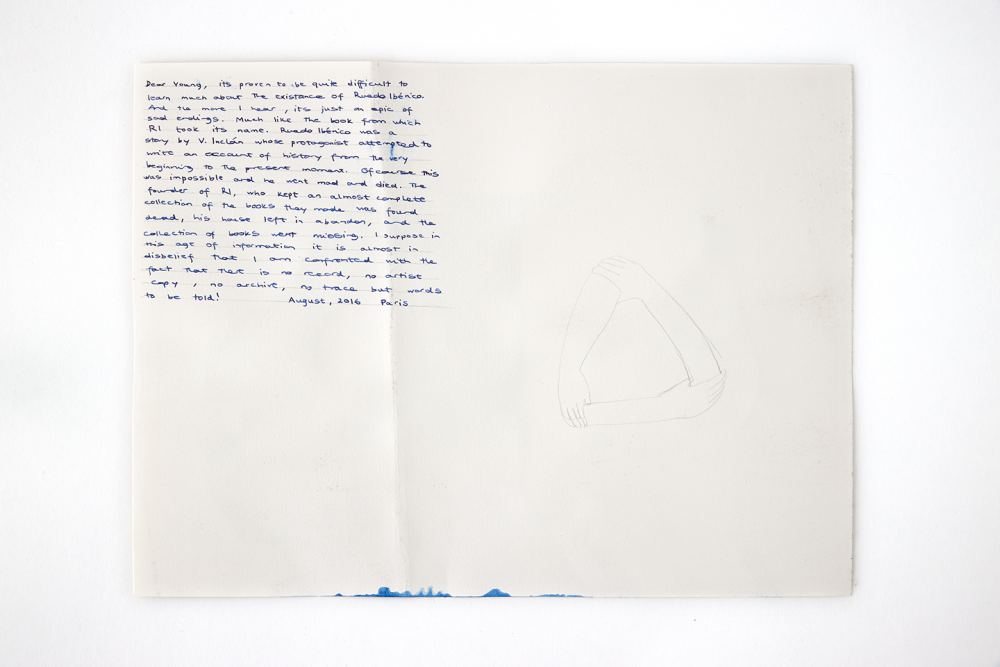 Dear Young, its proven to be quite difficult to
learn much about the existance of Ruedo Ibérico.
And the more I hear, its just an epic of
sad endings. Much like the book from which
RI took its name. Ruedo Ibérico was a
story by V. Inclán whose protagonist attempted to
write an account of history from the very
beginning to the present moment. Of course this
was impossible and he went mad and died. The
founder of RI, who kept an almost complete
collection of the books they made was found
dead, his house left in abandon, and the
collection of books went missing. I suppose in
this age of information it is almost in
disbelief that I am confronted with the
fact that there is no record, no artist
copy, no archive, no trace but words
to be told! August, 2016 Paris